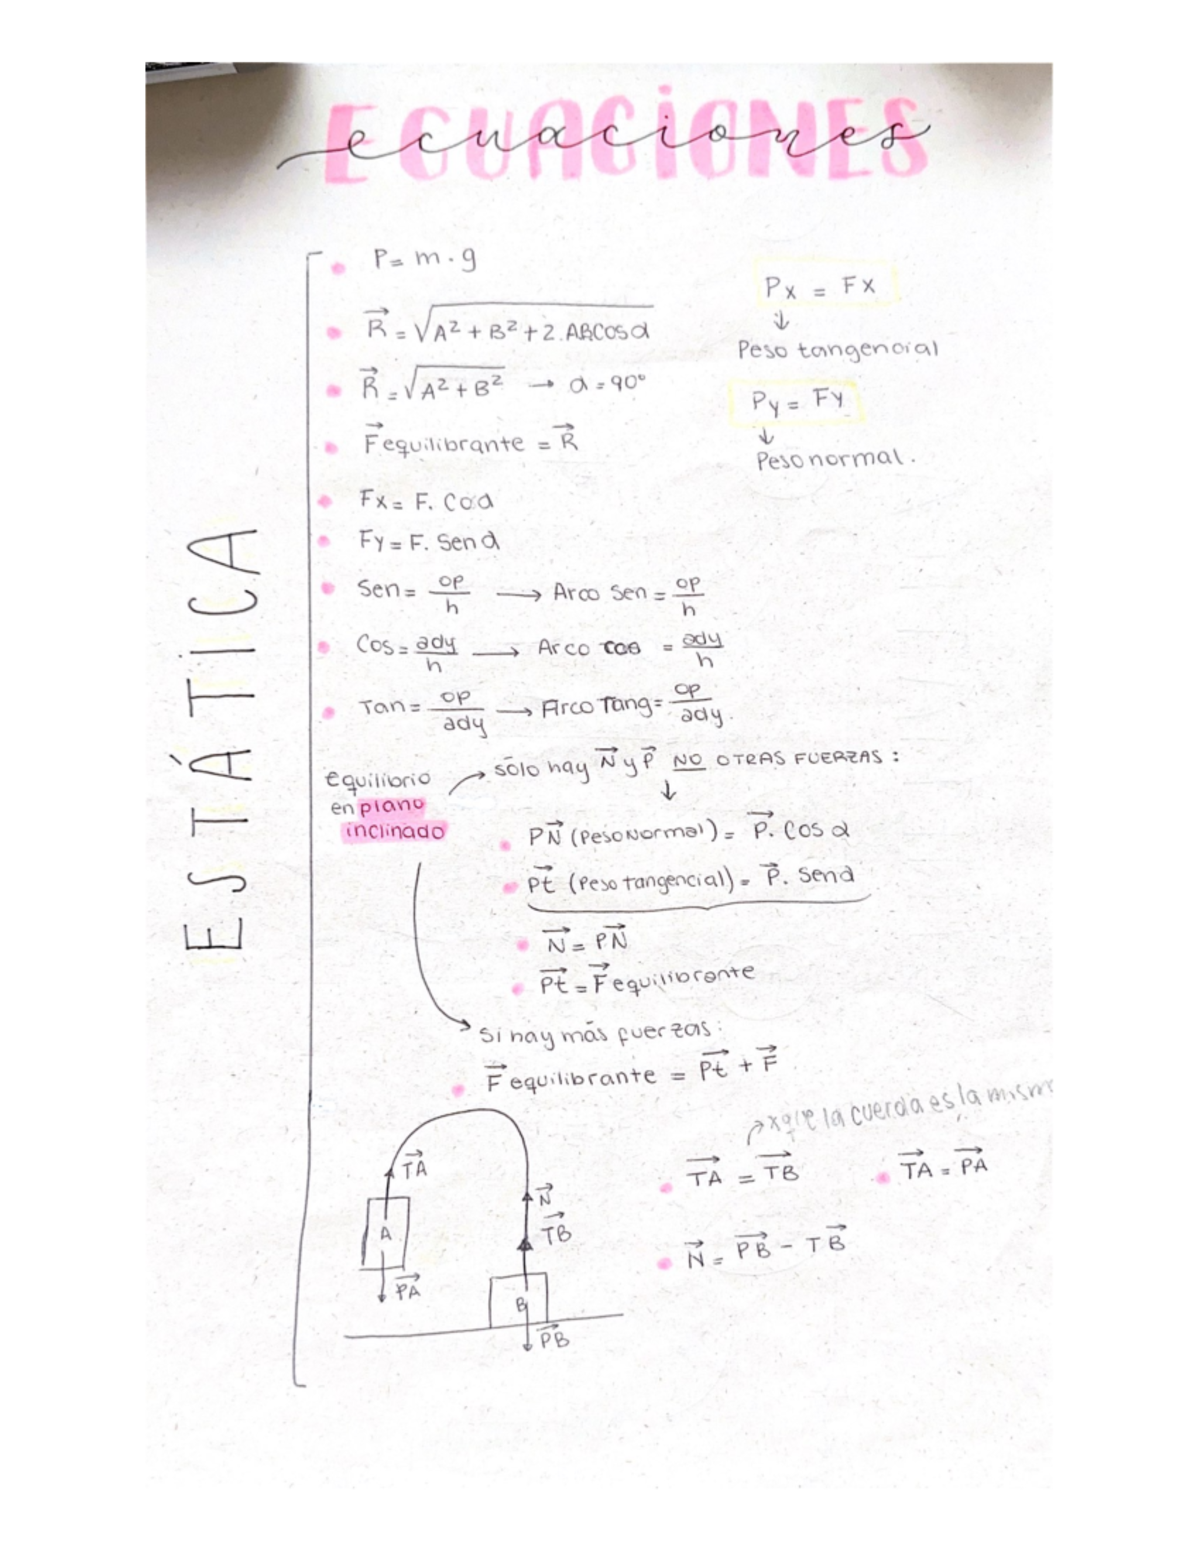 ECUACIONES
ecuaciones
ESTÁTICA
P = m . g
R⃗ = √A² + B² + 2.ABCosα
R⃗ = √A² + B² → α = 90°
F⃗equilibrante = R⃗
Fx = F. Coα
Fy = F. Senα
Sen = op/h → Arco Sen = op/h
Cos = ady/h → Arco cos = ady/h
Tan = op/ady → Arco Tang = op/ady.
Px = Fx
↓
Peso tangencial
Py = Fy
↓
Peso normal.
equilibrio
en plano
inclinado
→ sólo hay N⃗ y P⃗ NO OTRAS FUERZAS :
↓
PN⃗ (Peso Normal) = P⃗. Cos α
Pt⃗ (Peso tangencial) = P⃗. Senα
N⃗ = PN⃗
Pt⃗ = F⃗ equilibrante
Si hay más fuerzas:
F⃗ equilibrante = Pt⃗ + F⃗
TA⃗
A
PA⃗
N⃗
TB⃗
B
PB⃗
→ xq/e la cuerda es la mism
TA⃗ = TB⃗
TA⃗ = PA⃗
N⃗ = PB⃗ - TB⃗